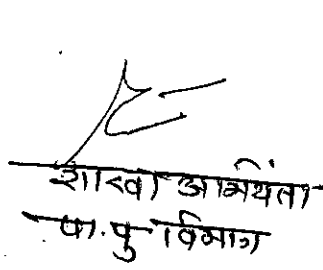 शाखा अभियंता
पा. पु विभाग